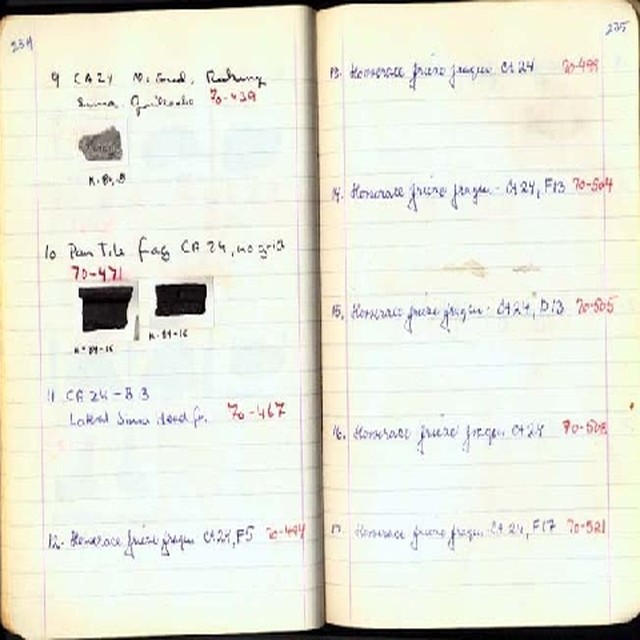 234
9 CA24 No Grid, Raking
Sima. Guilloche 70-439
10 Pan Tile frag CA 24, no grid
70-471
11 CA 24 - B3
Lateral Sima 70-467
12. Horserace frieze fragm. CA 24, F5 70-494
235
13. Horserace frieze fragm. CA 24 70-499
14. Horserace frieze fragm. CA 24, F13 70-504
15. Horserace frieze fragm. CA 24, D13 70-505
16. Horserace frieze fragm. CA 24
17. Horserace frieze fragm. CA 24, F17 70-521